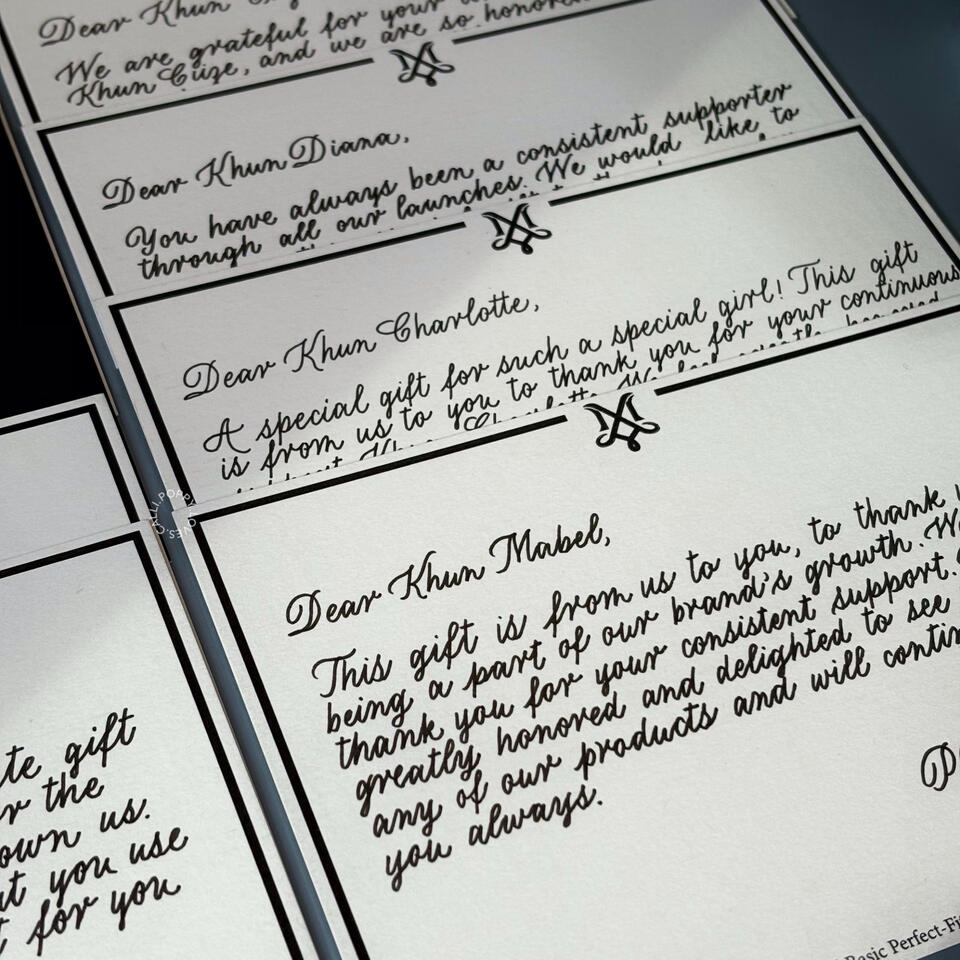 Dear Khun
We are grateful for your
Khun Guze, and we are so honored
Dear Khun Diana,
You have always been a consistent supporter
through all our launches. We would like to
Dear Khun Charlotte,
A special gift for such a special girl! This gift
is from us to you to thank you for your continuous
Dear Khun Mabel,
This gift is from us to you, to thank
being a part of our brand's growth. We
thank you for your consistent support.
greatly honored and delighted to see
any of our products and will contin
you always.
Basic Perfect-Fi
te gift
r the
own us.
at you use
t for you
CALLI.POPPYLOVES